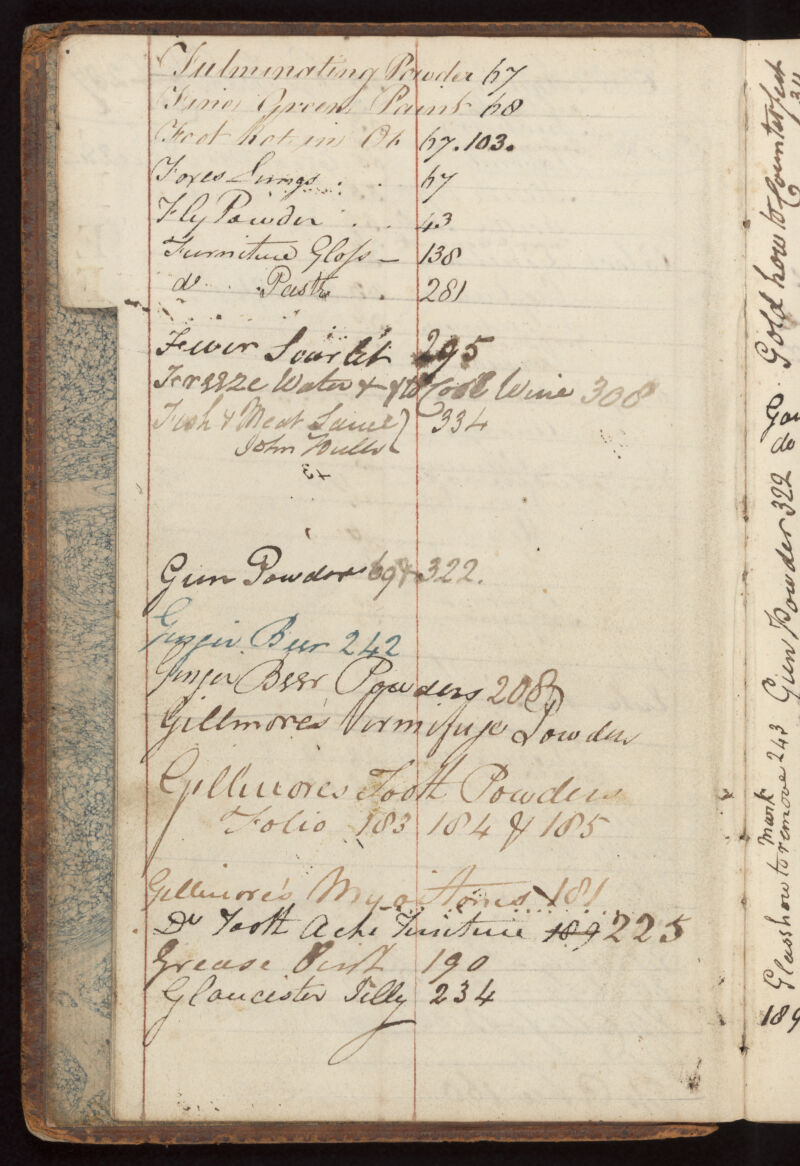 Fulminating Powder 67
Fine Green Paint 68
Foot Rot in 67.103.
Foxes Lungs . . 67
Fly Powder . . 43
Furniture Gloss — 138
do . . Paste . 281
Fever Scarlet 295
Freeze Water & to Cool Wine 308
Fish & Meat Sauce } 334
John Hulls
Gun Powder 69 & 322.
Ginger Beer 242
Ginger Beer Powders 208
Gillmore's Vermifuge Powder
Gillmores Tooth Powders
Folio 183 184 & 185
Gillmore's 181
Dr Tooth Ache Tincture 189 225
Grease 190
Gloucester Jelly 234
Gold how to Counterfeit
Gun Powder 322 do
Glass how to remove mark 243
189